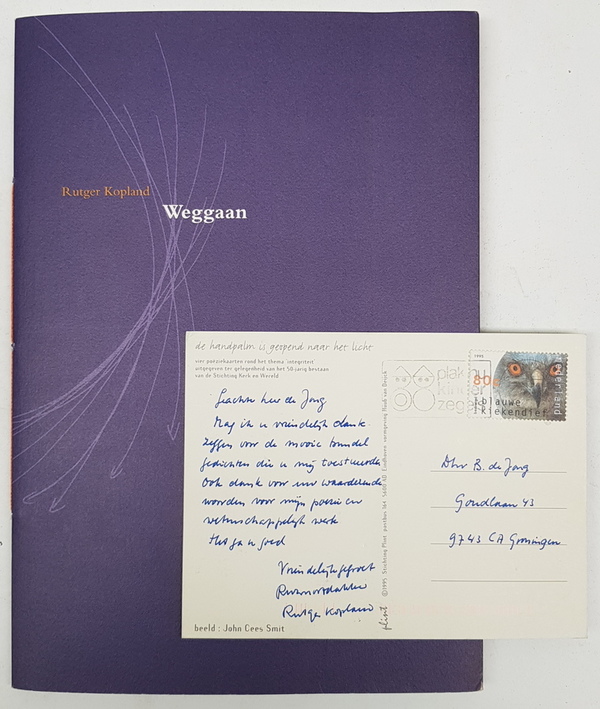 Rutger Kopland
Weggaan
de handpalm is geopend naar het licht
vier poëziekaarten rond het thema 'integriteit
uitgegeven ter gelegenheid van het 50-jarig bestaan
van de Stichting Kerk en Wereld
Geachte heer de Jong
Mag ik u vriendelijk dank
zeggen voor de mooie bundel
gedichten die u mij toestuurde
Ook dank voor uw waarderende
woorden voor mijn poëzie en
wetenschappelijk werk
Het ga u goed
Vriendelijke groet
Rutger Kopland
beeld : John Cees Smit
plint
©1995 Stichting Plint postbus 164 5600 AD Eindhoven vormgeving Mook van Driek
plak nu
kinder
zegels
1995
80
Nederland
blauwe
kiekendief
Dhr B. de Jong
Goudlaan 43
9743 CA Groningen